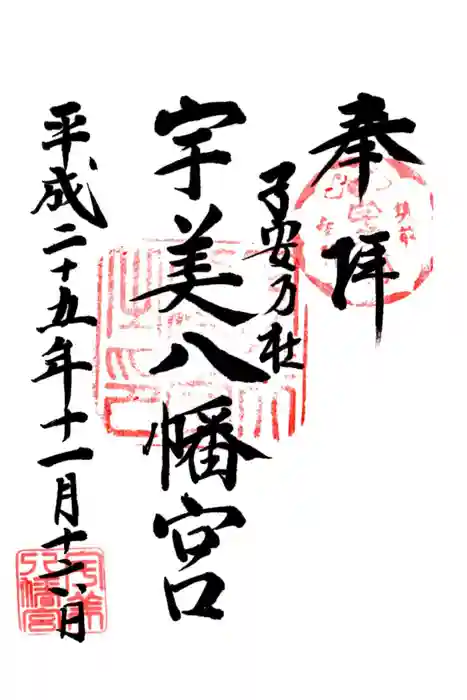 奉拝
子安乃社
宇美八幡宮
平成二十五年十一月十六日
宇美八幡宮